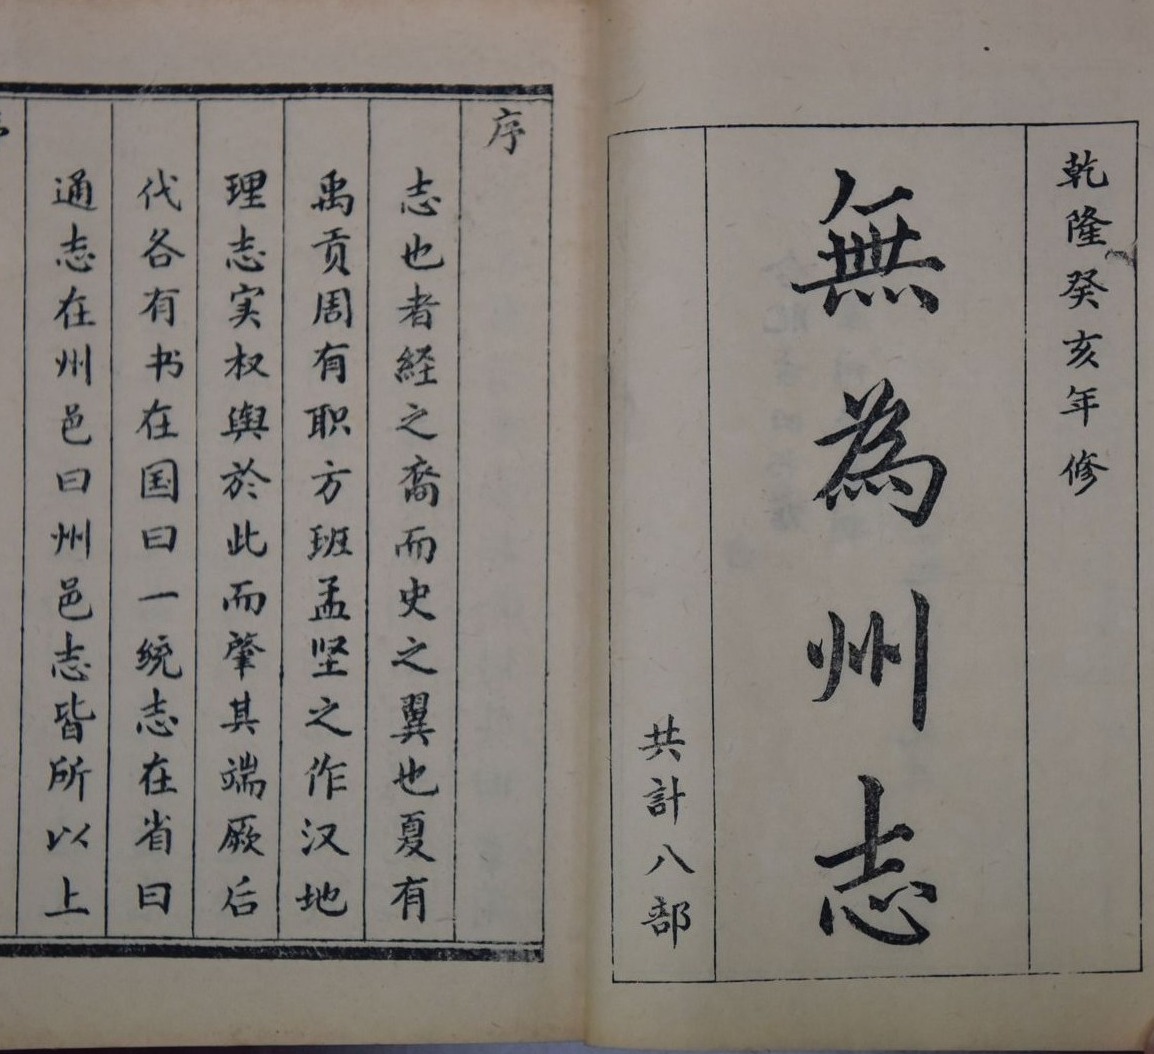 乾隆癸亥年修
無為州志
共計八部
序
志也者経之裔而史之翼也夏有
禹贡周有职方班孟坚之作汉地
理志实权舆於此而肇其端厥后
代各有书在国曰一统志在省曰
通志在州邑曰州邑志皆所以上